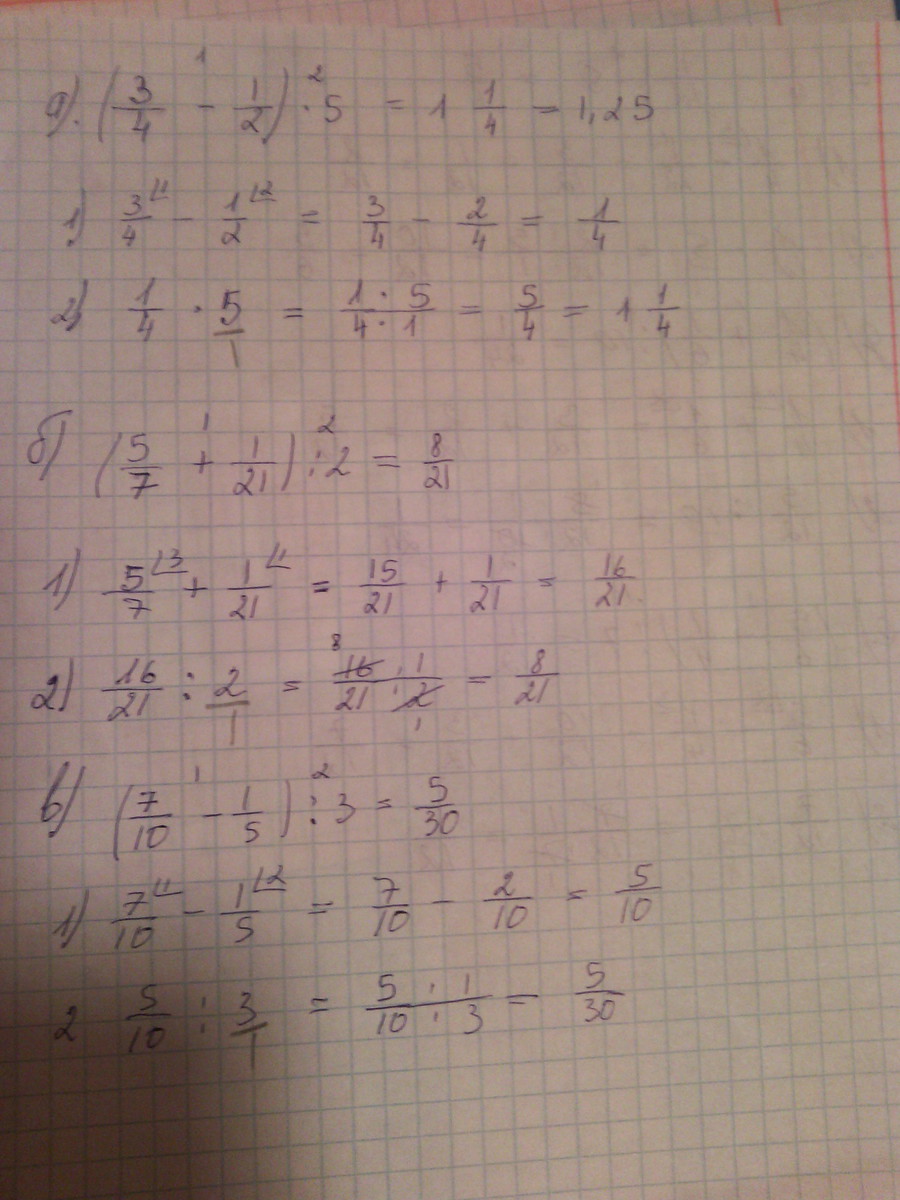 а). (3/4 - 1/2) · 5 = 1 1/4 = 1,25
1) 3/4 - 1/2 = 3/4 - 2/4 = 1/4
2) 1/4 · 5/1 = 1 · 5/4 · 1 = 5/4 = 1 1/4
б) (5/7 + 1/21) : 2 = 8/21
1) 5/7 + 1/21 = 15/21 + 1/21 = 16/21
2) 16/21 : 2/1 = 16 · 1/21 · 2 = 8/21
в) (7/10 - 1/5) : 3 = 5/30
1) 7/10 - 1/5 = 7/10 - 2/10 = 5/10
2 5/10 : 3/1 = 5 · 1/10 · 3 = 5/30